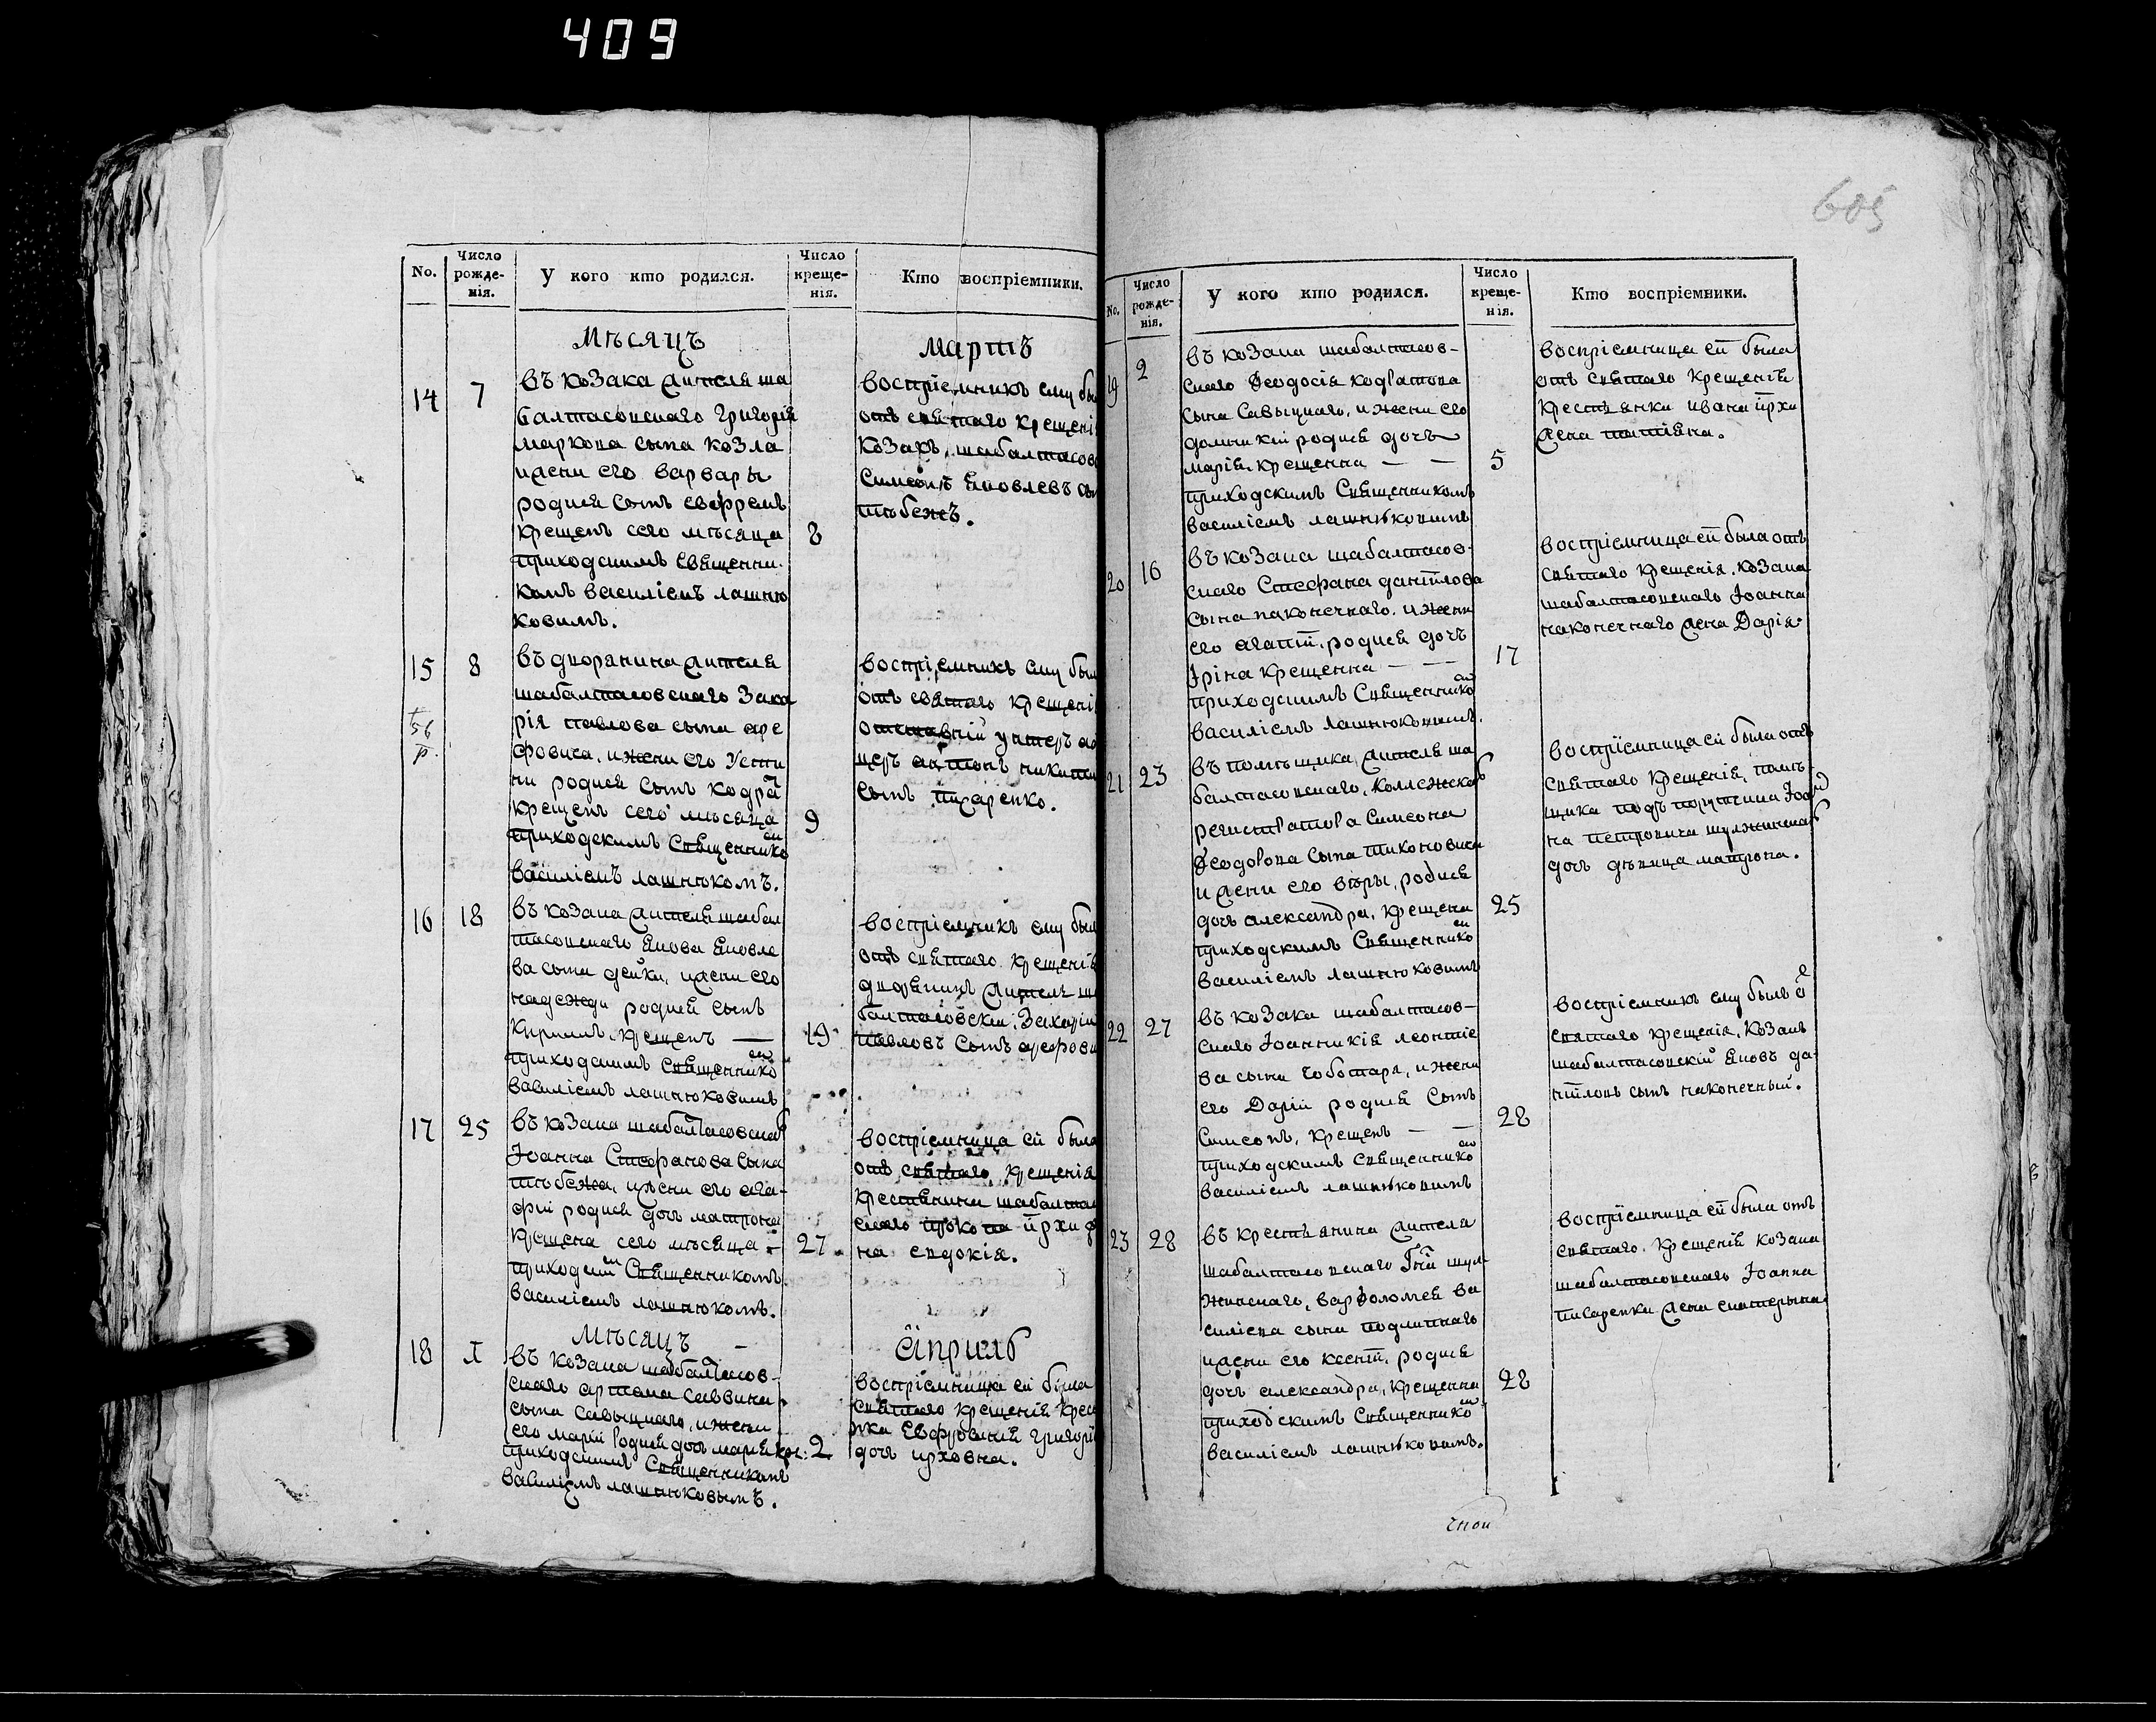 409
605
No.
Число рожде-нія.
У кого кто родился.
Число креще-нія.
Кто воспріемники.
Мѣсяцъ
мартъ
14
7
въ козака жителя ша
балтасовскаго григорія
маркова сына козла
и жени его варвары
родися сынъ евфремъ
крещенъ сего мѣсяца
8
приходскимъ священни-
комъ василіемъ лашню
ковимъ.
воспріемникъ ему бы
отъ святаго крещені
козакъ шабалтасов
Симеонъ яковлевъ сы
15
8
въ дворянина жителя
шабалтасовскаго Заха
рія павлова сына аре
фовича, и жени его Усти
ни родися сынъ кодра
крещенъ сего мѣсяца
9
приходскимъ священнико
василіемъ лашнюкомъ.
воспріемникъ ему бы
отъ святаго крещені
отставній унтеръ
церъ антонъ никити
сынъ писаренко.
16
18
въ козака жителя шабал
тасовскаго якова яковле
ва сына дейки, и жени его
надежди родися сынъ
кирилъ крещенъ —
19
приходскимъ священнико
василіемъ лашнюковимъ
воспріемникъ ему бы
отъ святаго крещенія
дворянинъ житель ша
балтасовскій Захарій
павловъ сынъ арефови
17
25
въ козака шабалтасовска
Іоанна Стефанова сына
и жени его ага-
фіи родися дочъ матрона
крещена сего мѣсяца —
27
приходски священникомъ
василіемъ лашнюкомъ.
воспріемница ей была
отъ святаго крещенія
крестянина шабалтас
скаго
на евдокія.
Мѣсяцъ
априль
18
въ козака шабалтасов-
скаго артема саввина
сына савыцкаго, и жени
его маріи родися дочь марія кре: 2
приходскимъ священникомъ
василіемъ лашнюковымъ.
воспріемница ей была
святаго крещенія крес
янка Евфросинія григорі
дочъ ирховна.
No.
Число рожде-нія.
У кого кто родился.
Число креще-нія.
Кто воспріемники.
19
2
въ козака шабалтасов-
скаго Ѳеодосія кодратова
сына савыцкаго, и жени его
домникіи родися дочъ
марія крещенна — —
5
приходскимъ священникомъ
василіемъ лашнюковимъ
воспріемница ей была
отъ святаго крещенія
крестянки ивана ирхи
жена татіяна.
20
16
въ козака шабалтасов-
скаго Стефана даніилова
сына наконечнаго. и жени
его агапіи. родися дочъ
Іріна крещенна — —
17
приходскимъ священнико
василіемъ лашнюковимъ.
воспріемница ей была отъ
святаго крещенія. козака
шабалтасовскаго Іоанна
наконечнаго жена Дарія.
21
23
въ помѣщика, жителя ша
балтасовскаго, коллежска
регистратора Симеона
Ѳеодорова сына тихоновича
и жени его вѣры, родися
дочъ александра, крещена
25
приходскимъ священнико
василіемъ лашнюковимъ
воспріемница ей была отъ
святаго крещенія, помѣ
щика подъ порутчика Іоан
на петровича шулжинска
дочъ дѣвица матрона.
22
27
въ козака шабалтасов-
скаго Іоанникія леонтіе
ва сына чоботаря, и жени
его Даріи родися сынъ
Симеонъ, крещенъ — —
28
приходскимъ священнико
василіемъ лашнюковимъ
воспріемникъ ему былъ о
святаго крещенія, козакъ
шабалтасовскій яковъ да-
ніиловъ сынъ наконечный.
23
28
въ крестьянина жителя
шабалтасовскаго шул-
жинскаго, варѳоломея ва
силіева сына подлипнаго
и жени его ксеніи. родися
дочъ александра, крещенна
28
приходскимъ священнико
василіемъ лашнюковимъ.
воспріемница ей была отъ
святаго крещенія козака
шабалтасовскаго Іоанна
писаренка жена екатерына